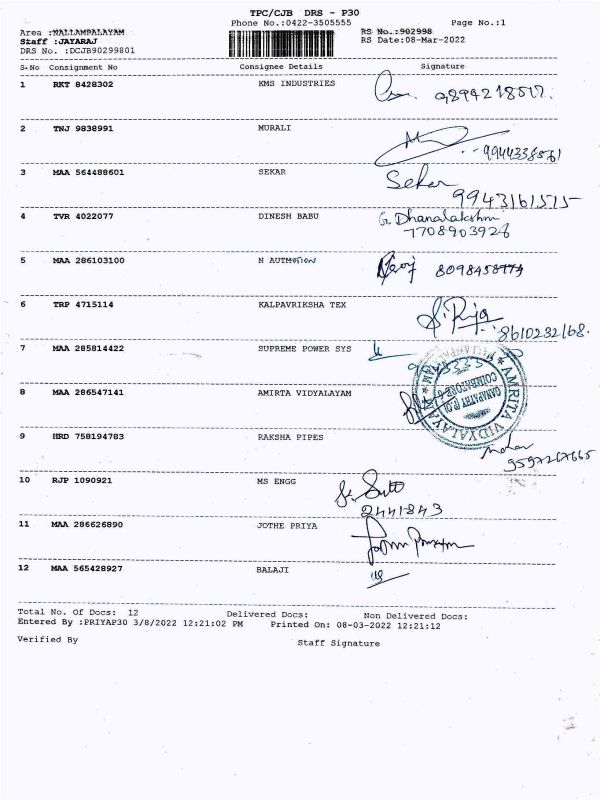 TPC/CJB DRS - P30
Phone No.:0422-3505555 Page No.:1
Area :NALLAMPALAYAM RS No.:902998
Staff :JAYARAJ RS Date:08-Mar-2022
DRS No. :DCJB90299801
S.No Consignment No Consignee Details Signature
1 RKT 8428302 KMS INDUSTRIES 9894218517.
2 TNJ 9838991 MURALI
9944338561
3 MAA 564488601 SEKAR Sekar
9943161515
4 TVR 4022077 DINESH BABU G. Dhanalakshmi
7708903928
5 MAA 286103100 N AUTMOTION
6 TRP 4715114 KALPAVRIKSHA TEX S. Priya
8610232168.
7 MAA 285814422 SUPREME POWER SYS
8 MAA 286547141 AMIRTA VIDYALAYAM
AMRITA VIDYALAYAM
GANAPATHY (P.O)
COIMBATORE
9 HRD 758194783 RAKSHA PIPES
9597267665
10 RJP 1090921 MS ENGG
2441843
11 MAA 286626890 JOTHE PRIYA
12 MAA 565428927 BALAJI
Total No. Of Docs: 12 Delivered Docs: Non Delivered Docs:
Entered By :PRIYAP30 3/8/2022 12:21:02 PM Printed On: 08-03-2022 12:21:12
Verified By Staff Signature